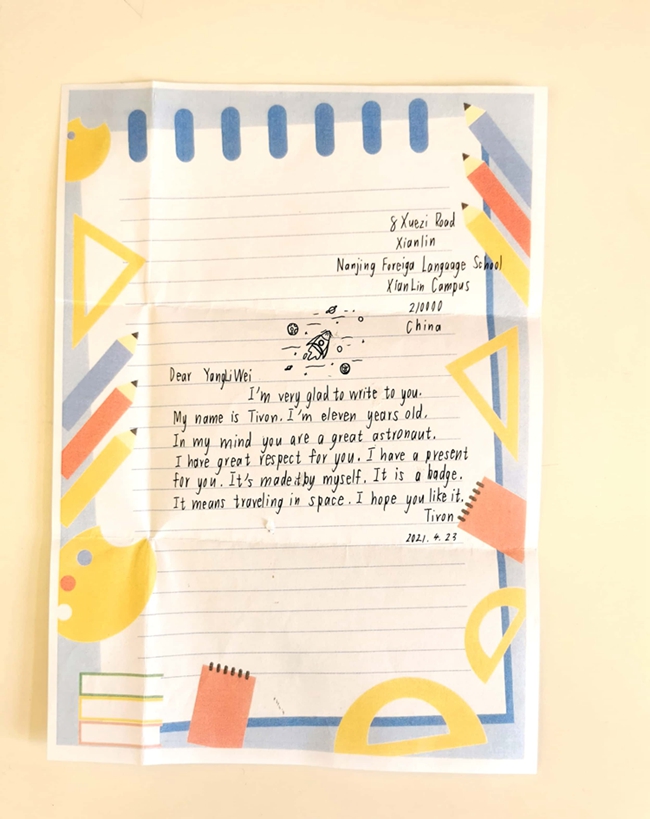 8 Xuezi Road
Xianlin
Nanjing Foreign Language School
XianLin Campus
210000
China
Dear YangLiWei
I'm very glad to write to you.
My name is Tivon. I'm eleven years old.
In my mind you are a great astronaut.
I have great respect for you. I have a present
for you. It's made it by myself. It is a badge.
It means traveling in space. I hope you like it.
Tivon
2021.4.23